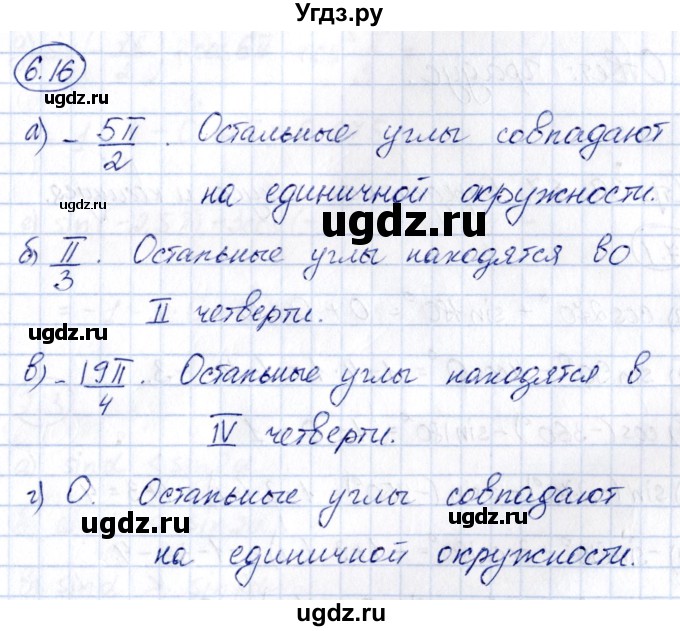 Угдз.ру
6.16
ugdz.ru
а) - 5π/2. Остальные углы совпадают
ugdz.ru
на единичной окружности.
ugdz.ru
б) π/3. Остальные углы находятся во
II четверти.
ugdz.ru
в) - 19π/4. Остальные углы находятся в
ugdz.ru
IV четверти.
г) 0. Остальные углы совпадают
ugdz.ru ugdz.ru
на единичной окружности.
ugdz.ru
ugdz.ru